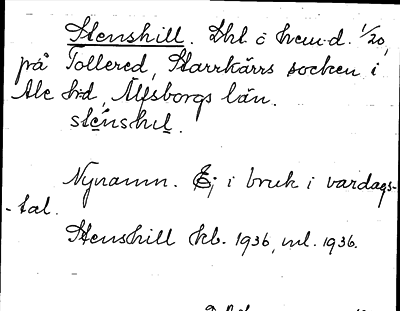 Stenshill. Lht o hemd. 1/20,
på Tollered, Starrkärrs socken i
Ale hd, Älfsborgs län.
stenshıl.
Nynamn. Ej i bruk i vardags-
-tal.
Stenshill kb. 1936, ml. 1936.